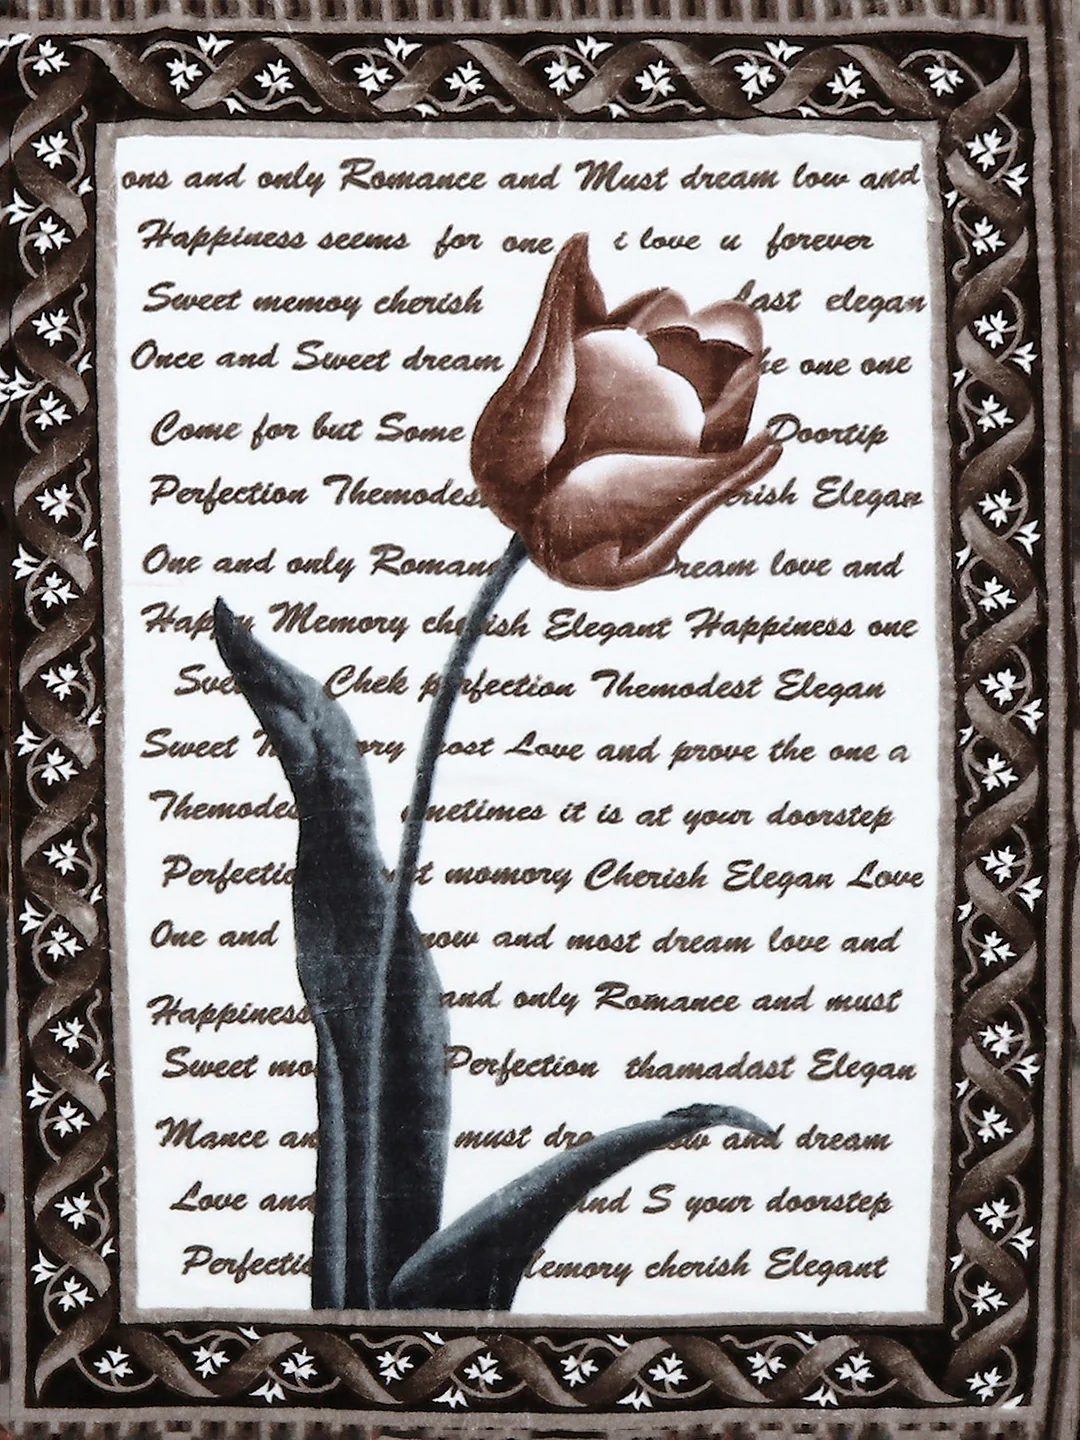 ons and only Romance and Must dream low and
Happiness seems for one i love u forever
Sweet memoy cherish last elegan
Once and Sweet dream he one one
Come for but Some Doortip
Perfection Themodes erish Elegan
One and only Roman Dream love and
Happy Memory cherish Elegant Happiness one
Chek perfection Themodest Elegan
Sweet ory Love and prove the one a
Themodes metimes it is at your doorstep
Perfectio t momory Cherish Elegan Love
One and now and most dream love and
Happiness and only Romance and must
Sweet mo Perfection thamadast Elegan
Mance an must dre ow and dream
Love and and S your doorstep
Perfectio emory cherish Elegant